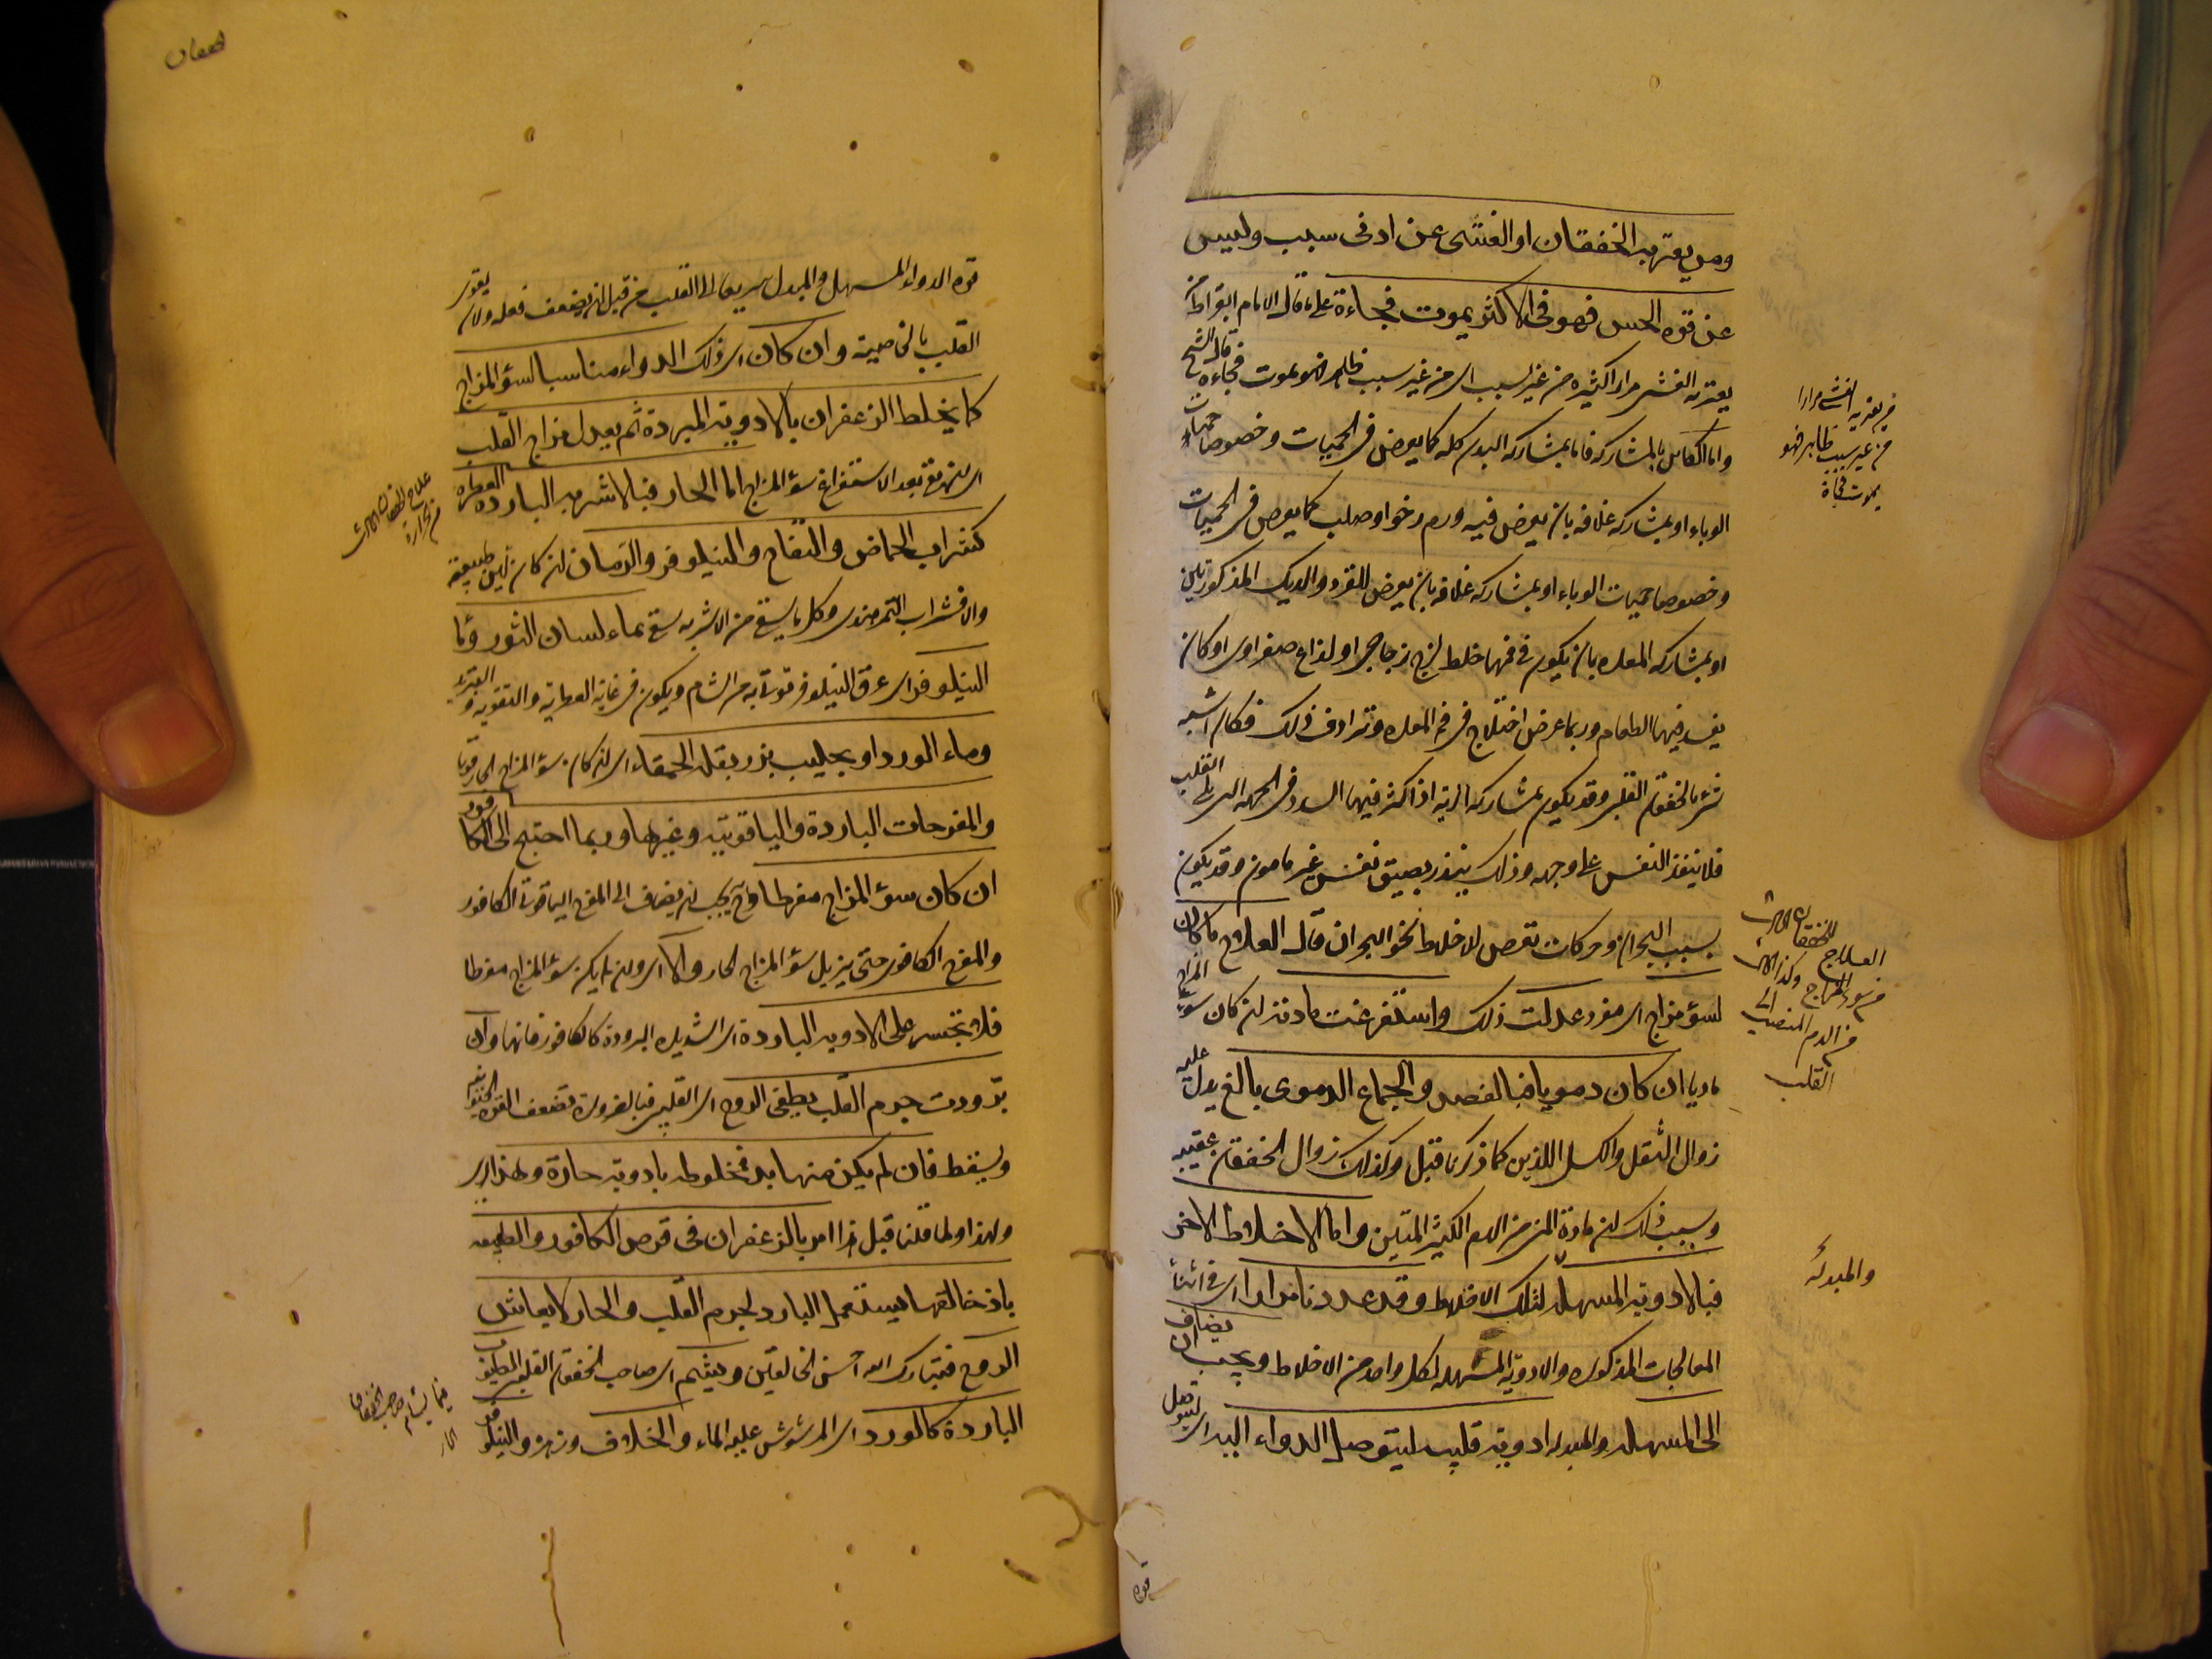 ومن يعتريه الخفقان او الغشى عن ادنى سبب وليس
عن قوه الحس فهو فى الاكثر يموت فجاءة على ما قال الامام ابقراط من
يعتريه الغشى مرارا كثيره من غير سبب اى من غير سبب ظاهر فهو يموت فجاءه قال الشيخ
واما الكاين بالمشاركه فاما بمشاركه البدن كله كما يعرض فى الحميات وخصوصا حميات
الوباء او بمشاركه غلافه بان يعرض فيه ورم رخو او صلب كما يعرض فى الحميات
وخصوصا حميات الوباء او بمشاركه غلافه بان يعرض للقرد والديك المذكورتين
او بمشاركه المعده بان يكون فى فمها خلط لزج زجاجى او لذاع صفراوى او كان
يفسد فيها الطعام وربما عرض اختلاج فى فم المعده وترادف ذلك فكان اشبه
شئ بالخفقان القلبى وقد يكون بمشاركه الريه اذا كثر فيها السدد فى الجهه التى تلى القلب
فلا ينفذ النفس على وجهه وذلك ينذر بضيق نفس غير مامون وقد يكون
بسبب البحران وحركات تعرض للاخلاط نحو البحران قال العلاج ما كان
لسؤ مزاج اى مفرد عدلت ذلك واستفرغت مادته ان كان سؤ المزاج
ماديا ان كان دمويا فبالفصد والجماع الدموى بالغ يدل عليه
زوال الثقل والكسل اللذين كما ذكرنا قبل وكذلك زوال الخفقان عقيبه
وسبب ذلك ان مادة المنى من الدم الكثير المتين واما الاخلاط الاخر
فبالادويه المسهله لتلك الاخلاط وقد عددنا مرارا اى فى اثناء
المعالجات المذكوره والادوية المسهله لكل واحد من الاخلاط ويجب ان يضاف
الى المسهله والمبدله ادوية قلبيه ليتوصل الدواء اليه اى ليتوصل
فمن يعتريه الغشى مرارا
من غير سبب ظاهر فهو
يموت فجاة
العلاج للخفقان الحادث
من سوء المزاج وكذا الحادث
من الدم المنصب الى
القلب
والمبدله
قوه
خفقان
قوه الدواء المسهل والمبدل سريعا الى القلب من قبل ان يضعف فعله ولان يقوى
القلب بالخاصية وان كان اى ذلك الدواء مناسبا لسؤ المزاج
كما يخلط الزعفران بالادوية المبردة ثم يعدل مزاج القلب
اى ان بقى بعد الاستفراغ سؤ المزاج اما الحار فبالاشربه البارده العطره
كشراب الحماض والتفاح والنيلوفر والرمان ان كان لين طبيعته
والا فشراب التمر هندى وكل ما يسقى من الاشربه يسقى بماء لسان الثور وما
النيلوفر اى عرق النيلوفر يؤتى به من الشام ويكون فى غاية العطرية والتقوية والتبريد
وماء الورد او بحليب بزر بقله الحمقاء اى ان كان سؤ المزاج الحار قويا
والمفرحات الباردة والياقوتيه وغيرها وربما احتيج الى الكافور
ان كان سؤ المزاج مفرطا وح يجب ان يضاف الى المفرح الياقوتى الكافور
والمفرح الكافورى حتى يزيل سؤ المزاج الحار والا اى وان لم يكن سؤ المزاج مفرطا
فلا تجسر على الادويه الباردة اى الشديده البرودة كالكافور فانها وان
برودت جرم القلب يطفى الروح اى القلبى فبالضروره تضعف القوة الحيوانيه
ويسقط فان لم يكن منها بد فمخلوطه بادوية حارة ولهذا اى
ولهذا ولما قلنا قبل هذا امر بالزعفران فى قرص الكافور والطبيعه
باذن خالقها يستعمل البارد لجرم القلب والحار لانعاش
الروح فتبارك الله احسن الخالقين ويشم اى صاحب الخفقان القلبى المطيب
الباردة كالورد اى المرشوش عليه الماء والخلاف وزهر والنيلوفر
علاج الخفقان الحادث
من حرارة
فيما يشم صاحب الخفقان
الحار